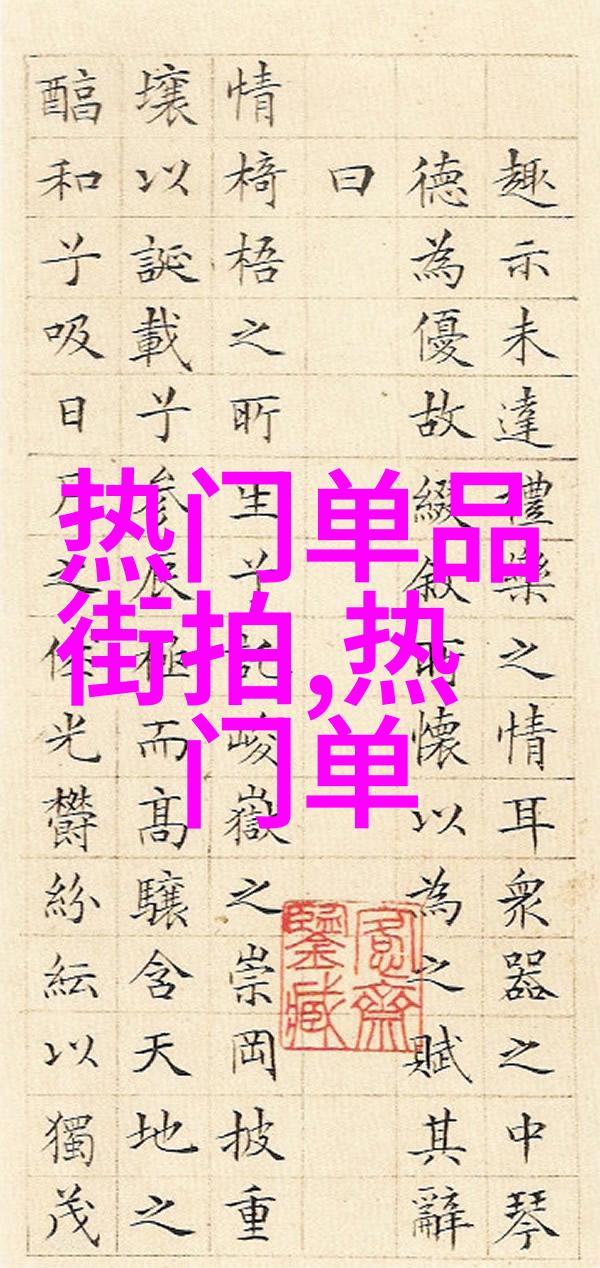 趣示未達禮樂之情耳衆器之中琴
德為優故綴叙所懷以為之賦其辭
曰
情椅梧之所生兮託峻嶽之崇岡披重
壤以誕載兮参辰極而高驤含天地之
醕和兮吸日月之休光鬱紛紜以獨茂
热门单品
街拍,热
门单
愙齋
鑒藏